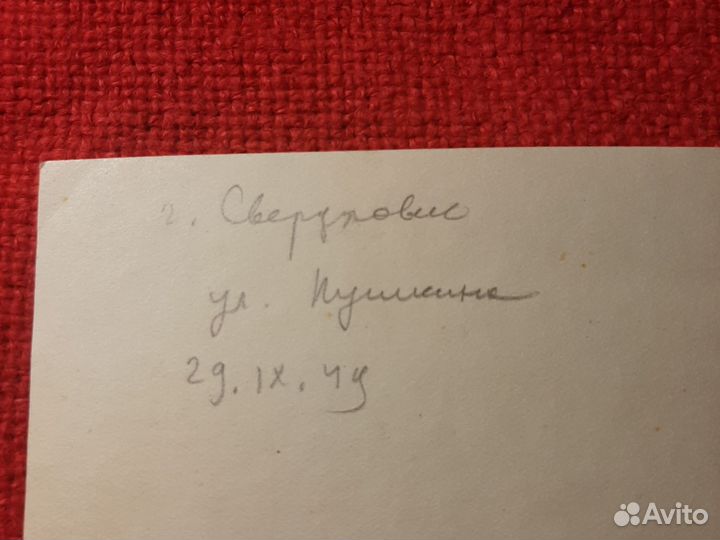 г. Свердловск
ул. Пушкина
29.IX.49
Avito